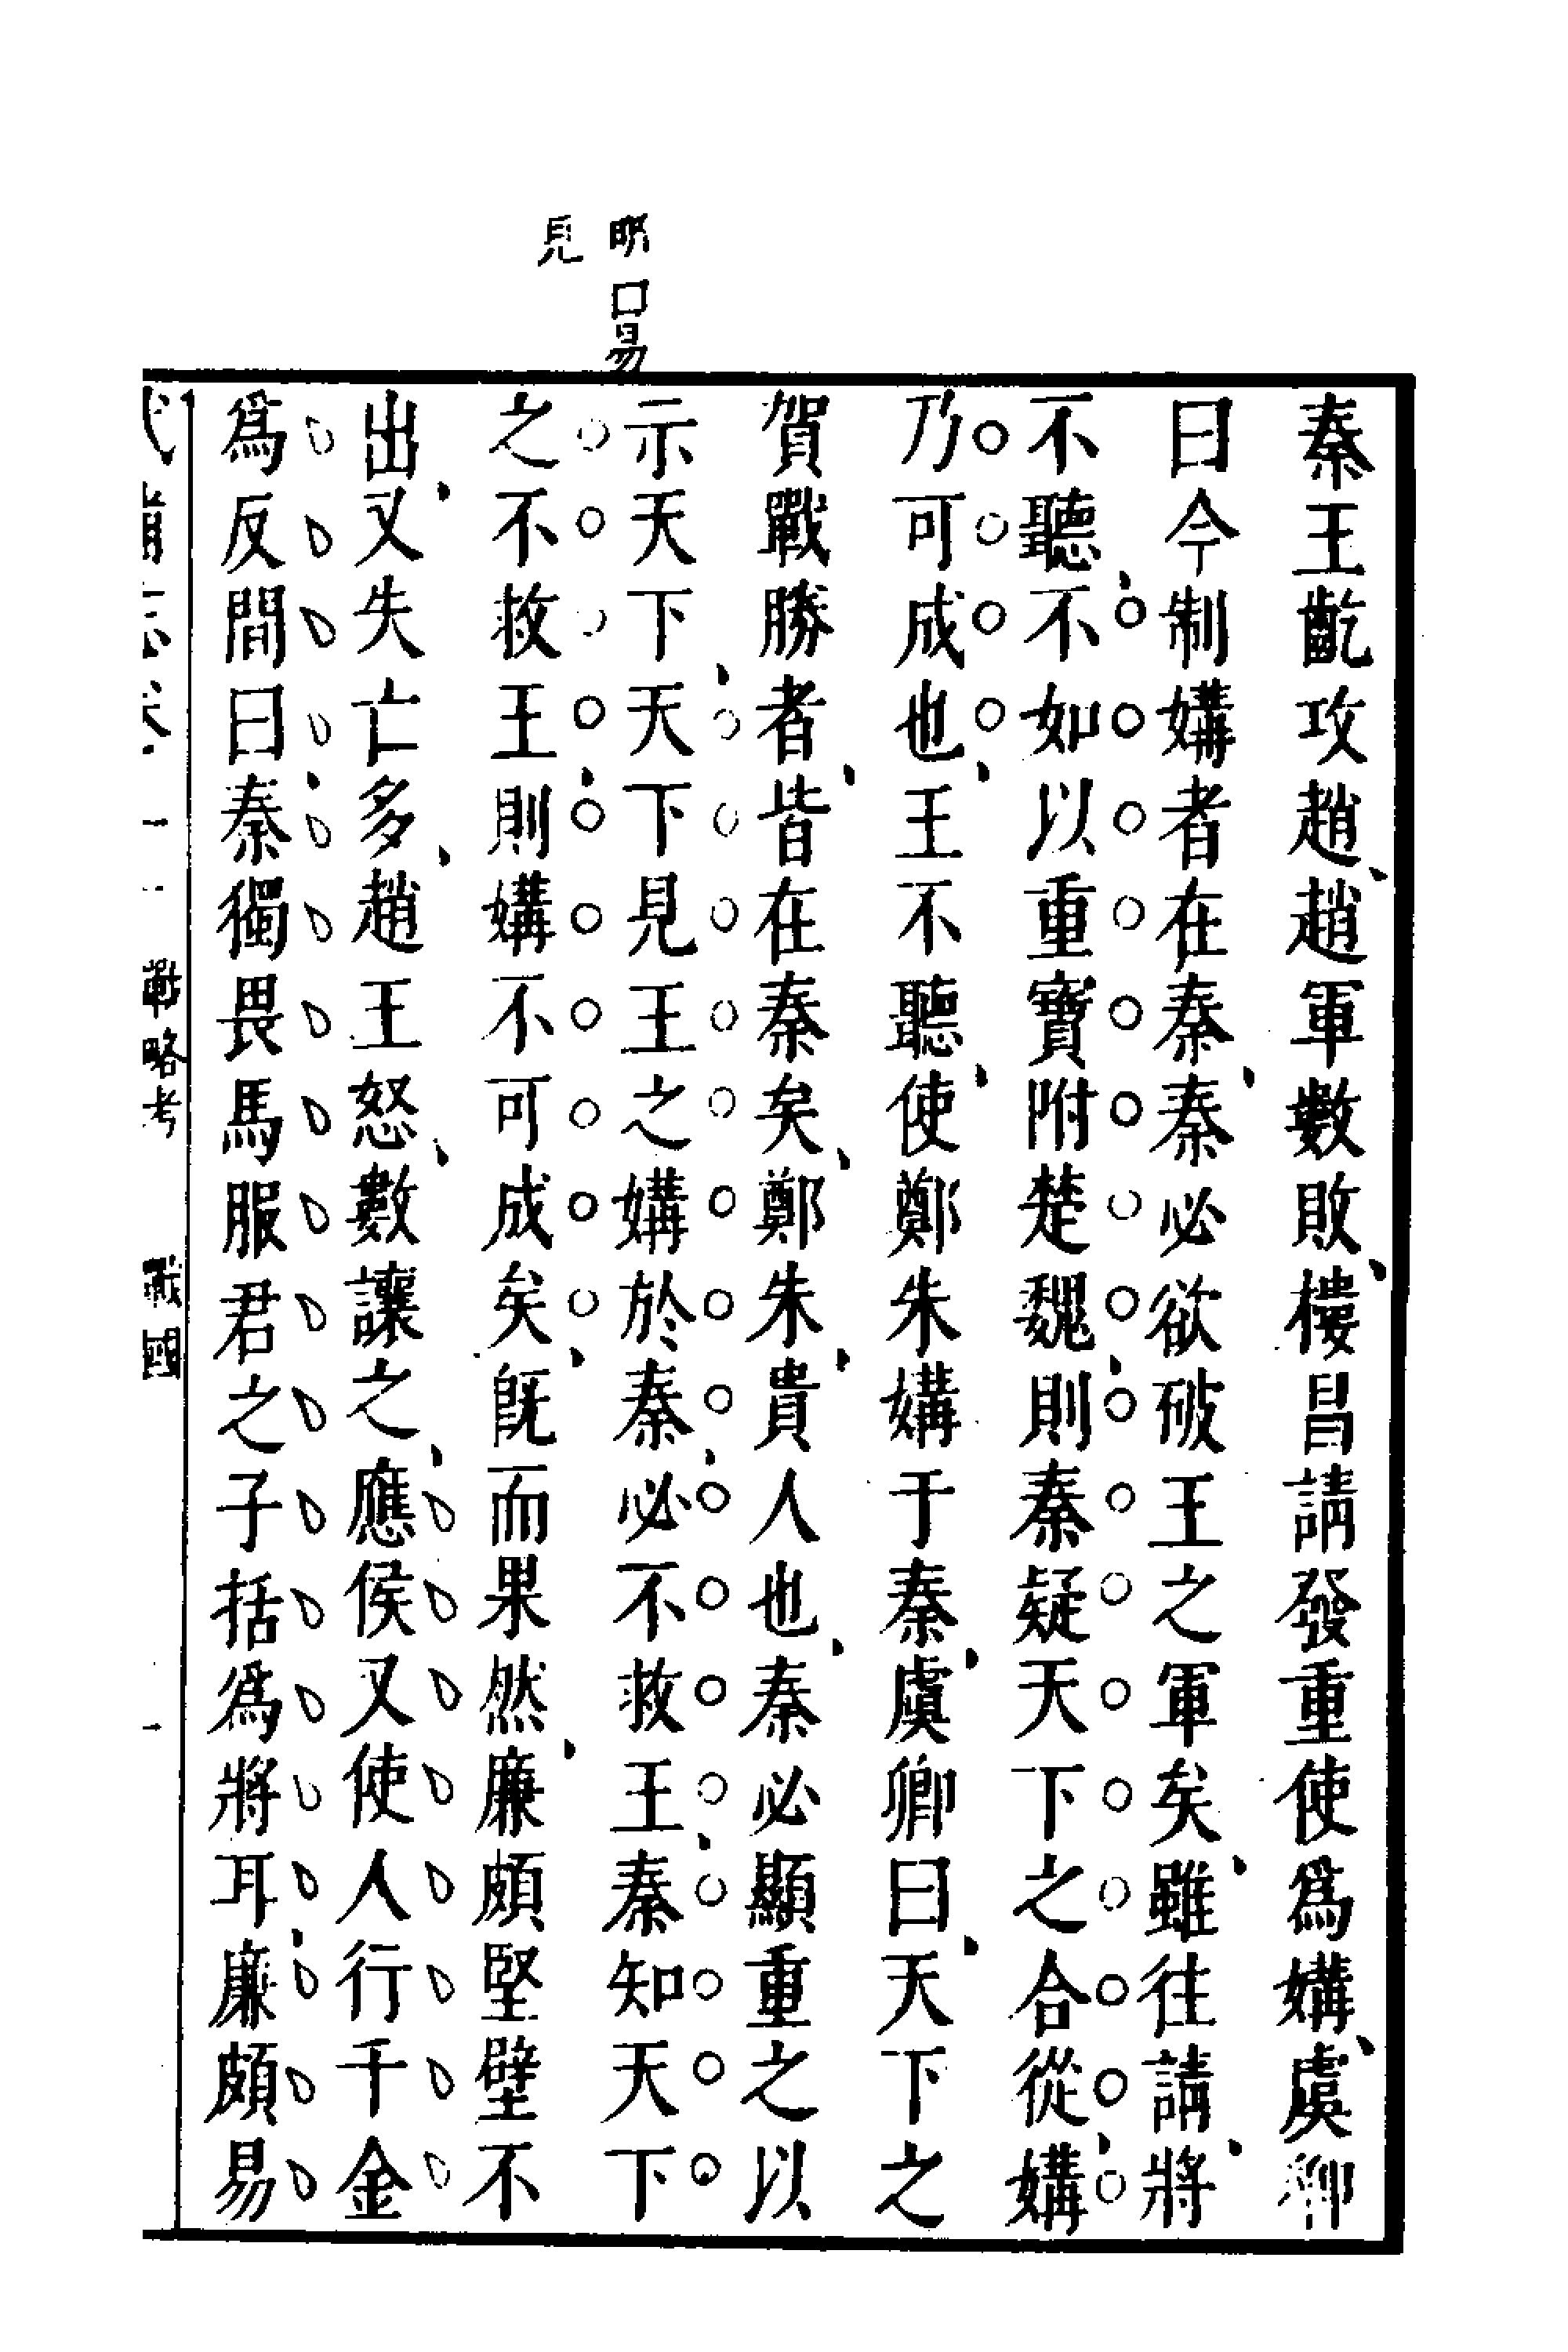 秦王齕攻趙趙軍數敗樓昌請發重使爲媾虞卿
曰今制媾者在秦秦必欲破王之軍矣雖往請將
不聽不如以重寶附楚魏則秦疑天下之合從媾
乃可成也王不聽使鄭朱媾于秦虞卿曰天下之
賀戰勝者皆在秦矣鄭朱貴人也秦必顯重之以
示天下天下見王之媾於秦必不救王秦知天下
之不救王則媾不可成矣旣而果然廉頗堅壁不
出又失亡多趙王怒數讓之應侯又使人行千金
爲反間曰秦獨畏馬服君之子括爲將耳廉頗易
戰略考 戰國
易
見